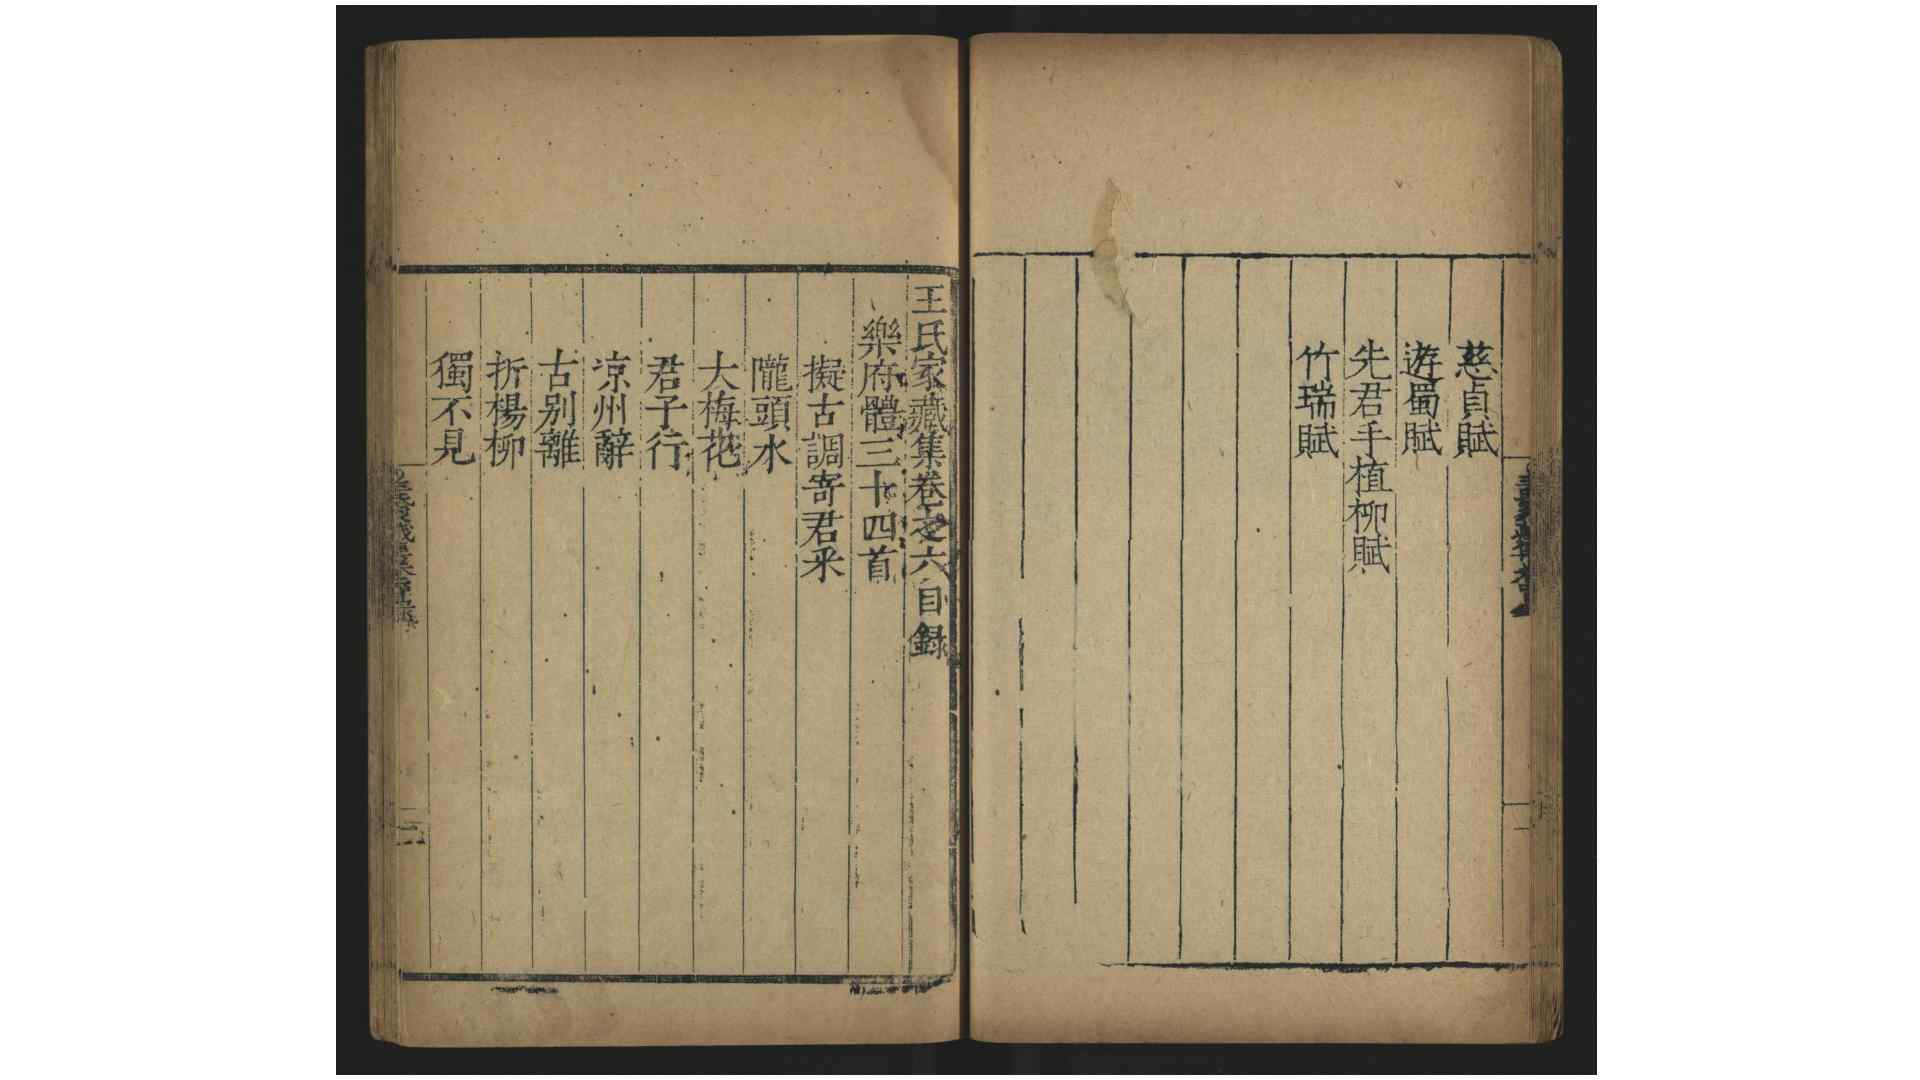 慈貞賦
遊蜀賦
先君手植柳賦
竹瑞賦
王氏家藏集卷之六目録
樂府體三十四首
擬古調寄君采
隴頭水
大梅花
君子行
凉州辭
古别離
折楊柳
獨不見